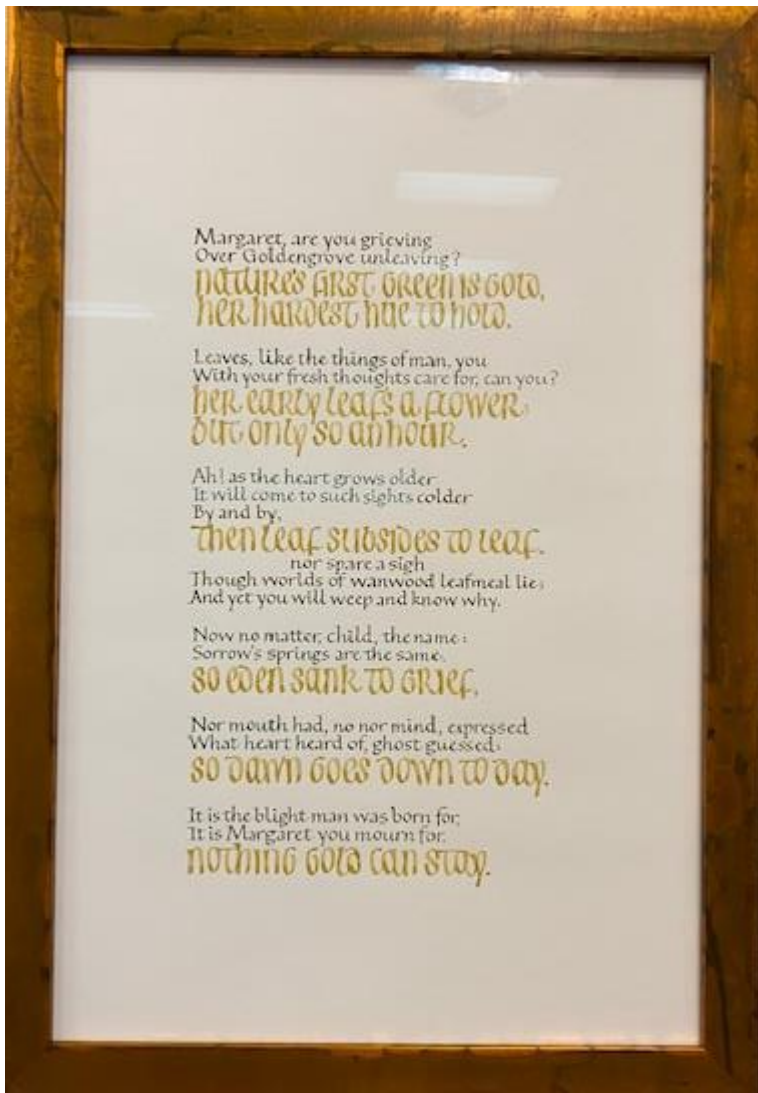 Margaret, are you grieving
Over Goldengrove unleaving?
nature's first green is gold,
her hardest hue to hold.
Leaves, like the things of man, you
With your fresh thoughts care for, can you?
her early leafs a flower;
but only so an hour.
Ah! as the heart grows older
It will come to such sights colder
By and by,
then leaf subsides to leaf.
nor spare a sigh
Though worlds of wanwood leafmeal lie;
And yet you will weep and know why.
Now no matter, child, the name:
Sorrow's springs are the same.
so eden sank to grief,
Nor mouth had, no nor mind, expressed
What heart heard of, ghost guessed:
so dawn goes down to day.
It is the blight man was born for,
It is Margaret you mourn for.
nothing gold can stay.